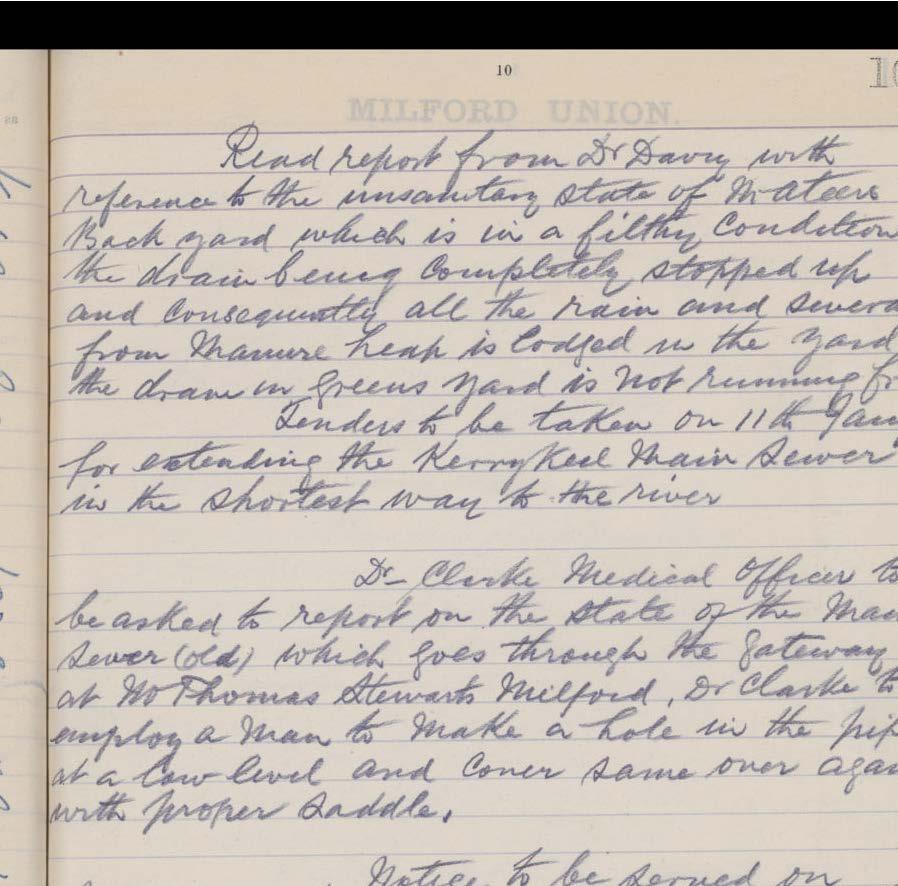 10
10
MILFORD UNION.
Read report from Dr Davy with
reference to the unsanitary state of McAteers
Back yard which is in a filthy Condition
the drain being Completely stopped up
and Consequently all the rain and
from Manure heap is lodged in the yard
the drain in Greens yard is not running
Tenders to be taken on 11th
for extending the Kerrykeel Main Sewer
in the shortest way to the river
Dr Clarke Medical Officer to
be asked to report on the state of the
Sewer (old) which goes through the gateway
at Mr Thomas Stewarts Milford, Dr Clarke to
employ a Man to Make a hole in the
at a low level and Cover same over
with proper Saddle.
Notice to be served on